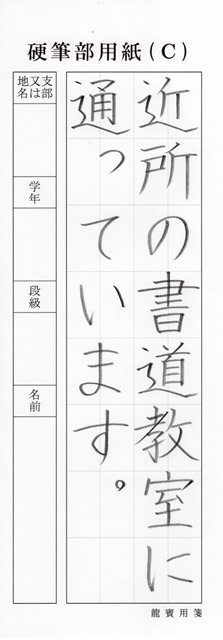 硬筆部用紙(C)
近所の書道教室に
通っています。
支部又は地名
学年
段級
名前
龍賓用箋